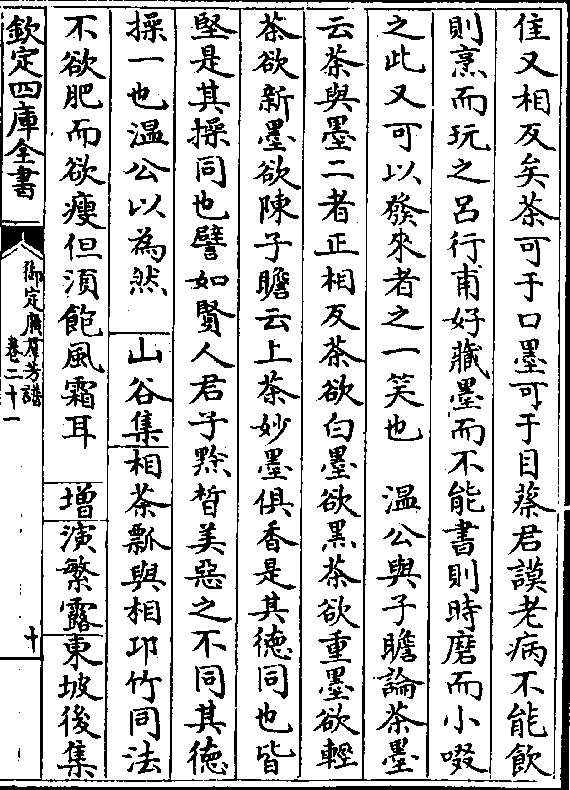 佳又相反矣茶可于口墨可于目蔡君謨老病不能飲
則烹而玩之呂行甫好藏墨而不能書則時磨而小啜
之此又可以發來者之一笑也　溫公與子瞻論茶墨
云茶與墨二者正相反茶欲白墨欲黑茶欲重墨欲輕
茶欲新墨欲陳子瞻云上茶妙墨俱香是其德同也皆
堅是其操同也譬如賢人君子黔晳美惡之不同其德
操一也溫公以為然　山谷集相茶瓢與相邛竹同法
不欲肥而欲瘦但須飽風霜耳　增演繁露東坡後集
欽定四庫全書
御定廣羣芳譜
卷二十一
十